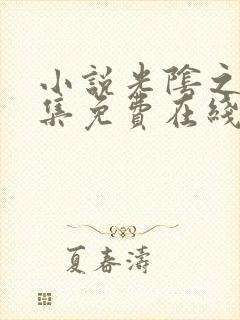 小說光陰之
集免費在綫
夏春濤